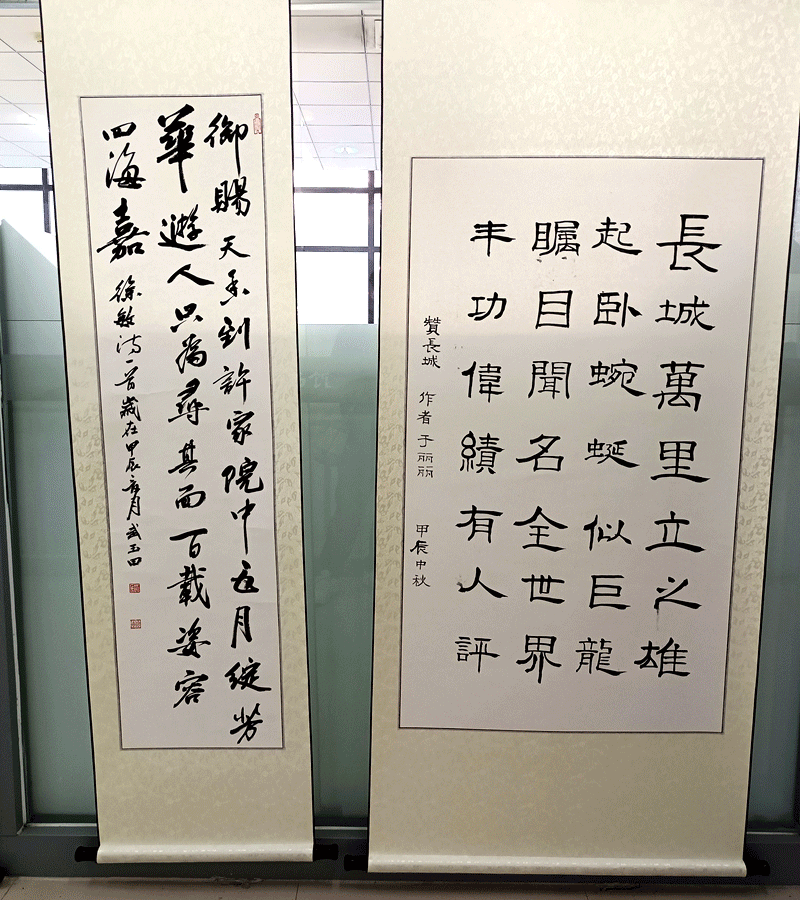 長城萬里立之雄
起卧蜿蜒似巨龍
矚目聞名全世界
丰功偉績有人評
贊長城 作者于丽丽 甲辰中秋
御賜天香到許家院中五月綻芳
華遊人只為尋其面百載姿容
四海嘉 徐敏诗一首歲在甲辰月